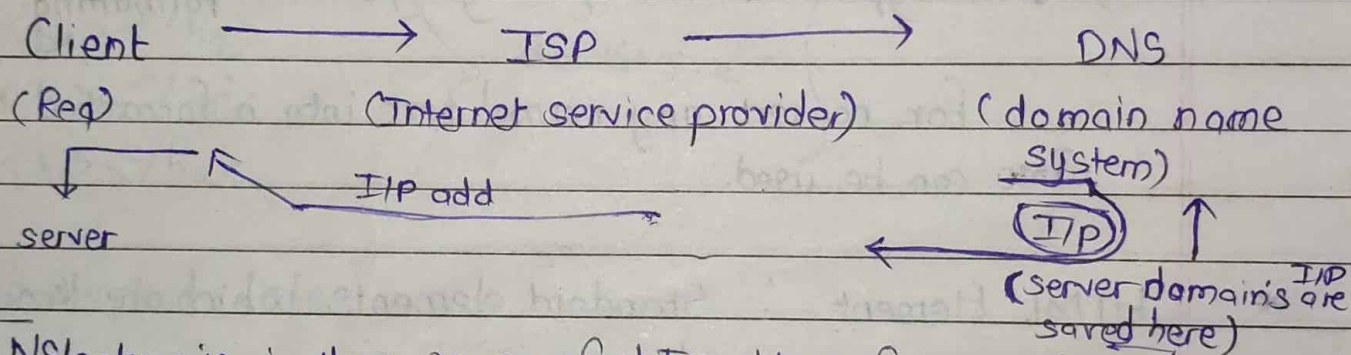 Client → ISP → DNS
(Req) (Internet service provider) (domain name
system)
I/P add
I/p
server
(server domain's I/P are
saved here)